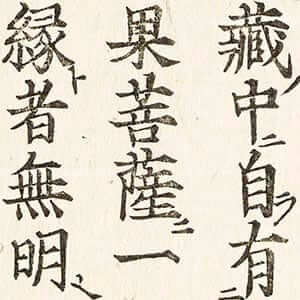 藏ノ中ニ自ラ有ニ
果菩薩ニ一
縁ト者無明